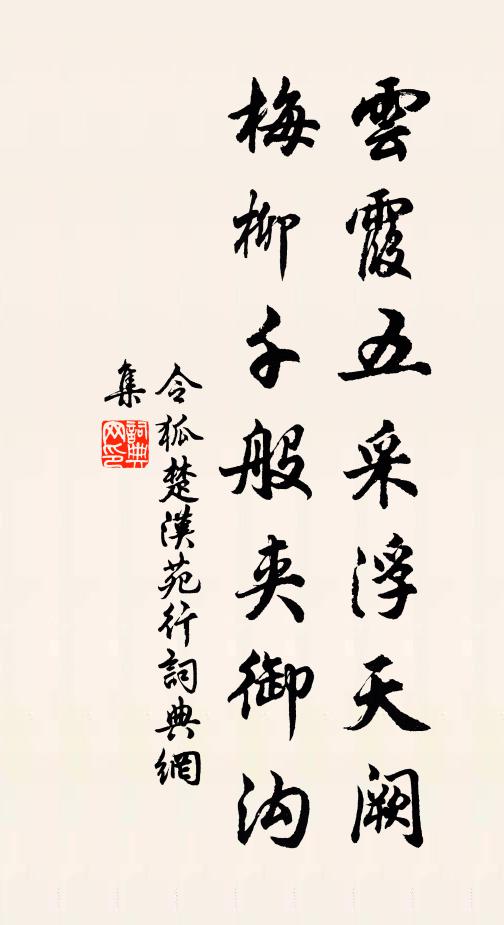 雲霞五采浮天闕
梅柳千般夾御沟
令狐楚漢苑行詞典網
集
詞典
网印